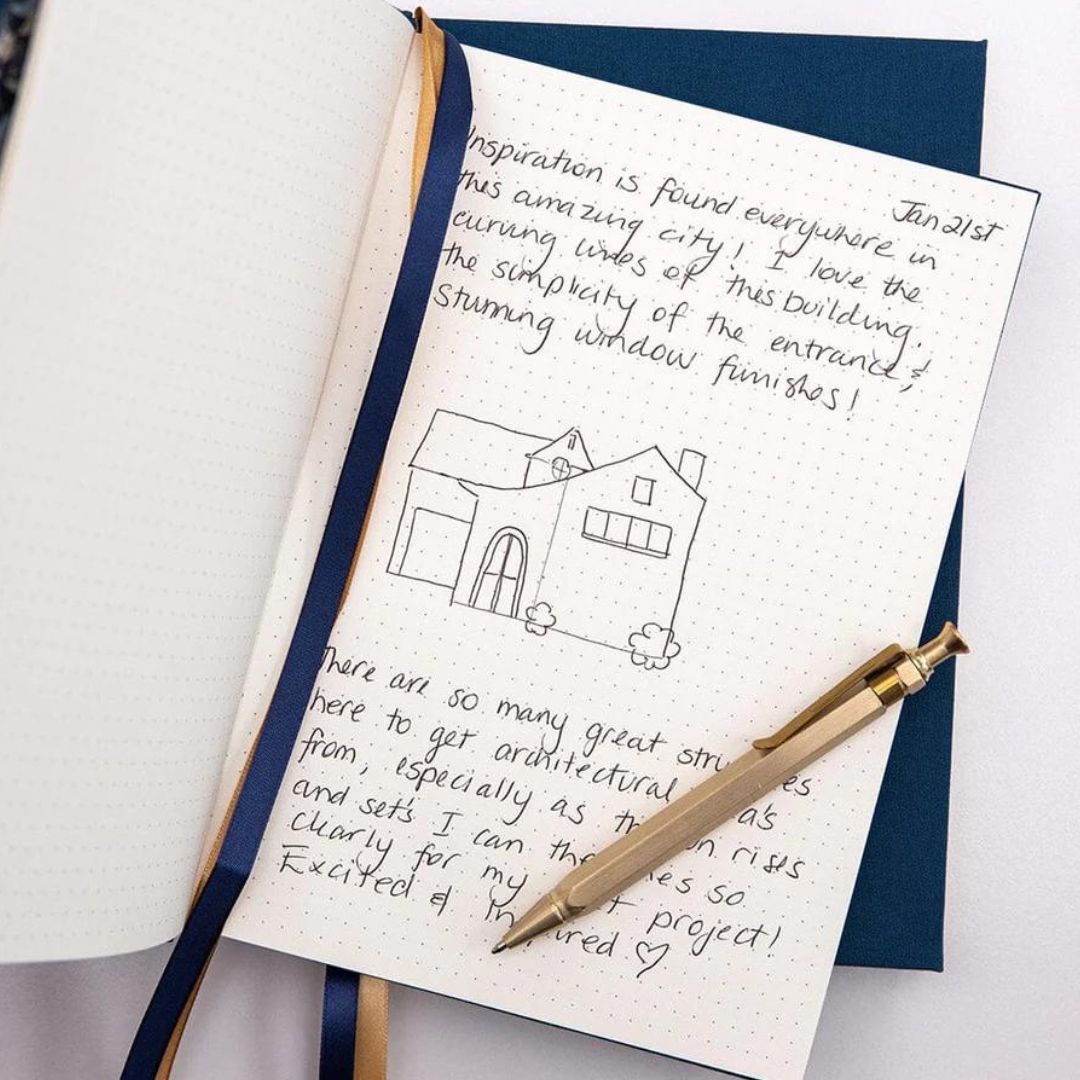 Jan 21st
Inspiration is found everywhere in
this amazing city! I love the
curving lines of this building.
the simplicity of the entrance, &
Stunning window finishes!
There are so many great
here to get architectural
from, especially as rises
and set's I can so
clearly for my project!
Excited &